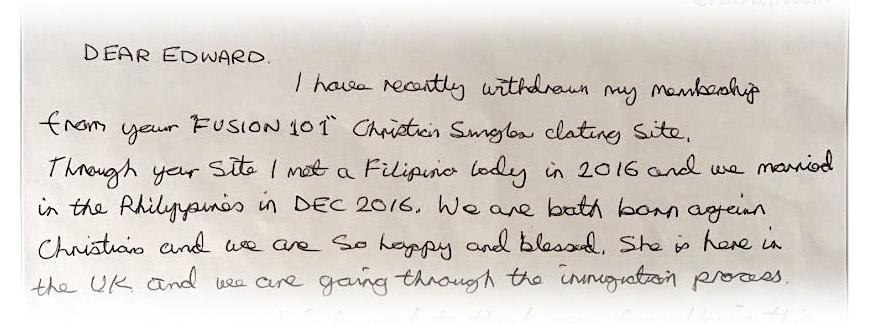 DEAR EDWARD.
I have recently withdrawn my membership
from your "FUSION 101" Christian Singles dating site.
Through your site I met a Filipino lady in 2016 and we married
in the Philippines in DEC 2016. We are both born again
Christians and we are so happy and blessed. She is here in
the UK and we are going through the immigration process.